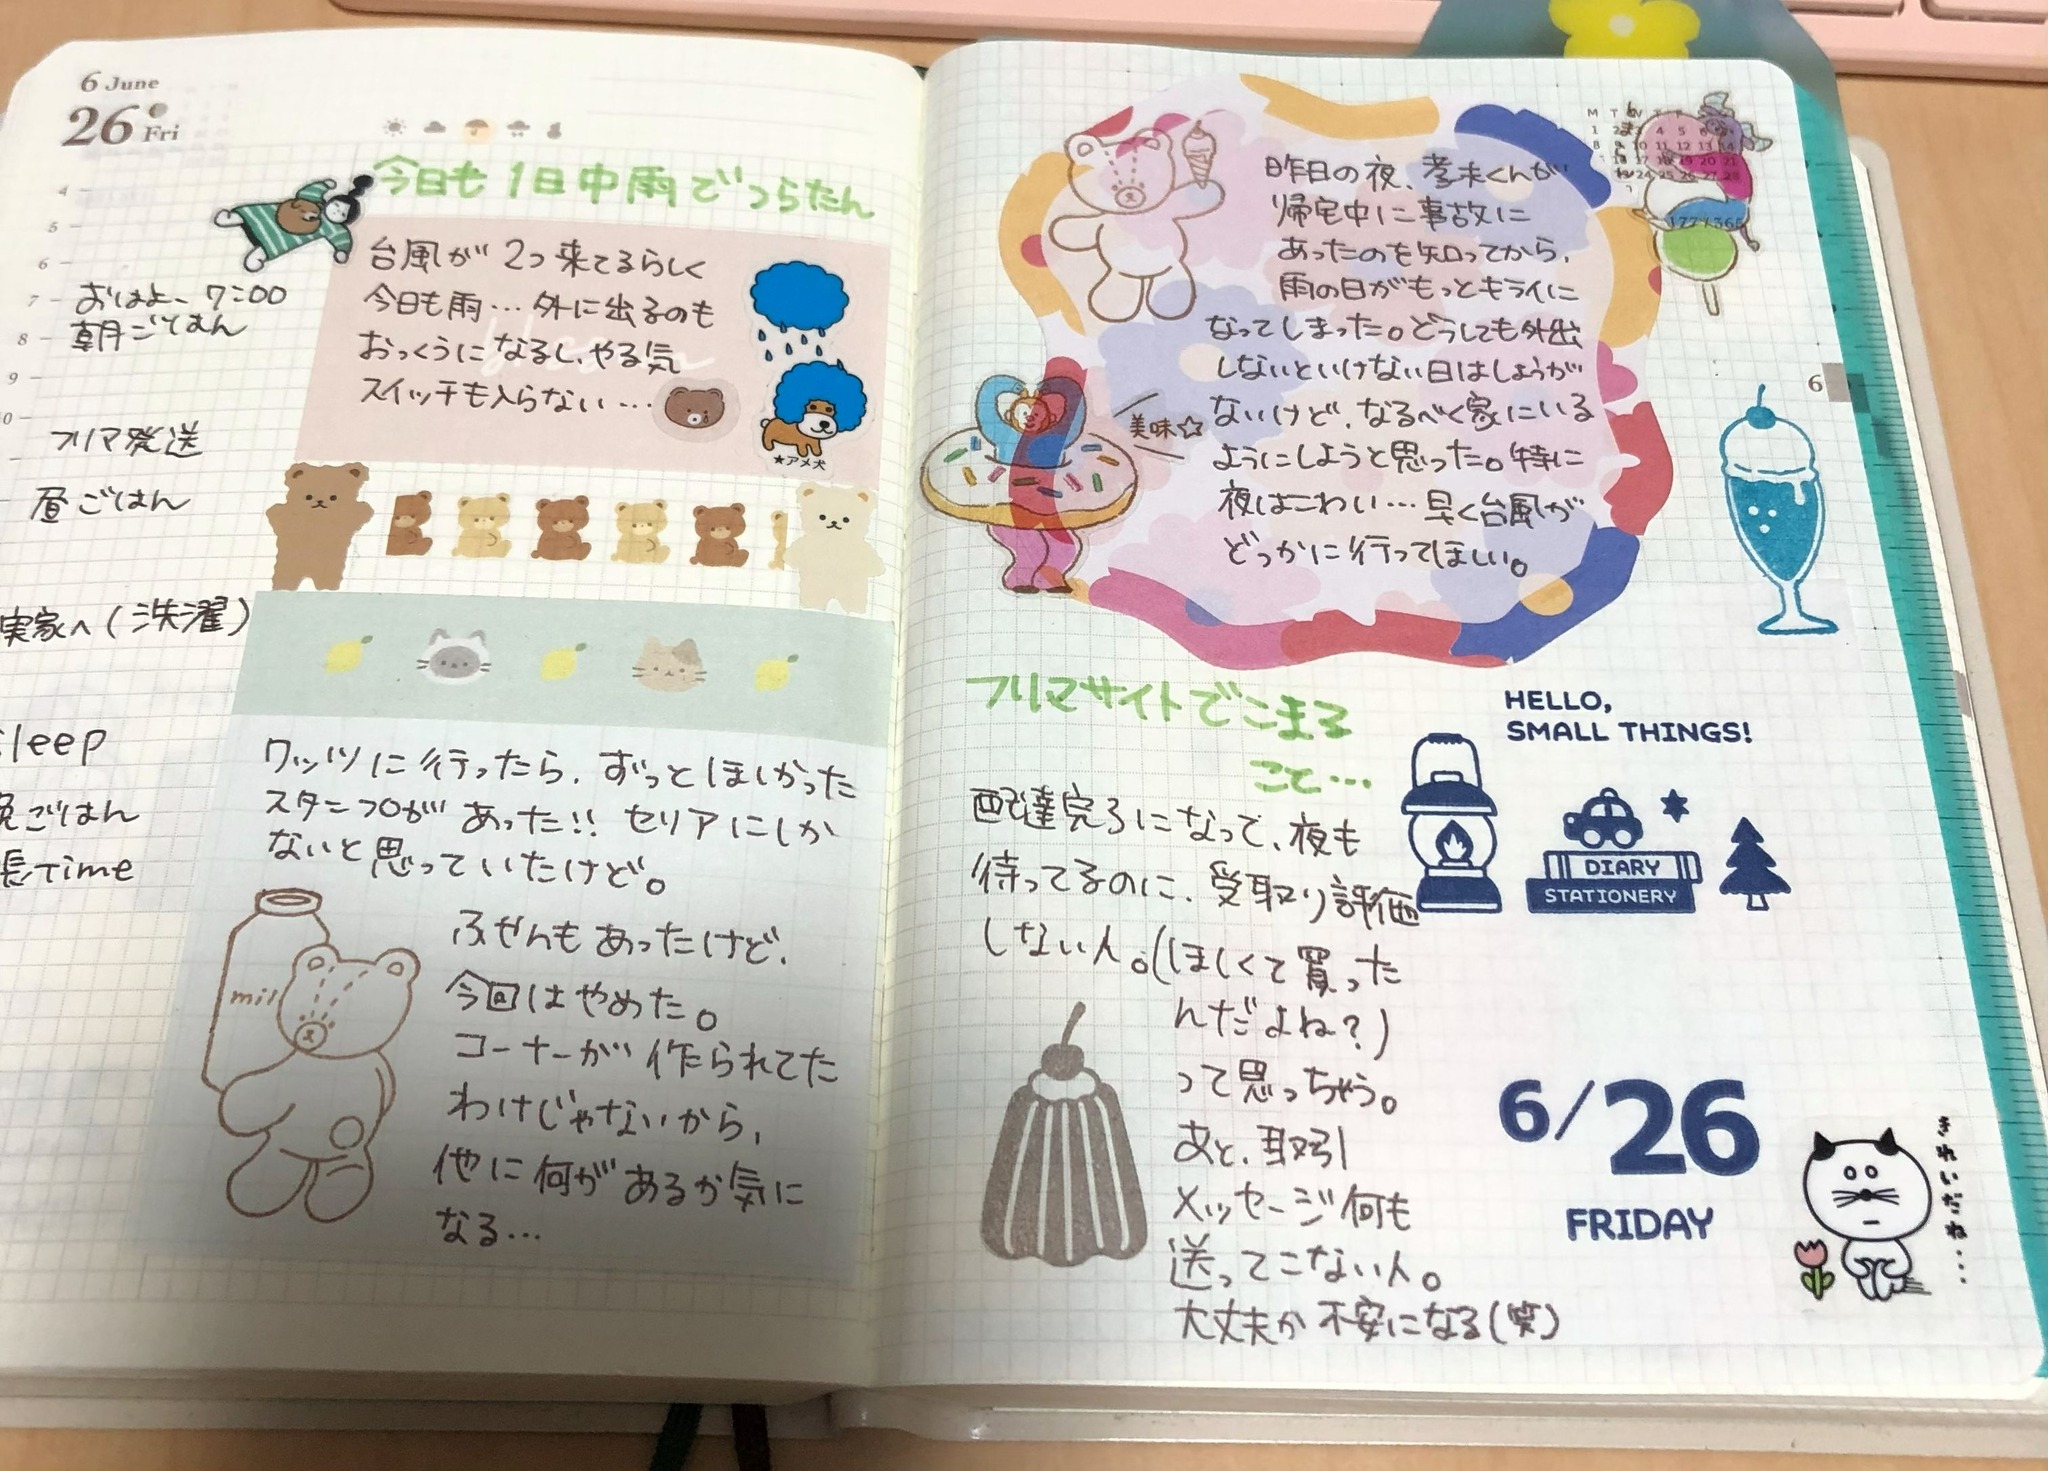 6 June
26 Fri
4
5
6
7
8
9
おはよ〜 7:00
朝ごはん
フリマ発送
昼ごはん
実家へ(洗濯)
sleep
晩ごはん
長Time
今日も1日中雨でつらたん
台風が2つ来てるらしく
今日も雨…外に出るのも
おっくうになるし、やる気
スイッチも入らない…
★アメ犬
ワッツに行ったら、ずっとほしかった
スタンプが あった!! セリアにしか
ないと思っていたけど。
ふせんもあったけど、
今回はやめた。
コーナーが 作られてた
わけじゃないから、
他に何があるか気に
なる…
mil
昨日の夜、孝未くんが
帰宅中に事故に
あったのを知ってから、
雨の日がもっとキライに
なってしまった。どうしても外出
しないといけない日はしょうが
ないけど、なるべく家にいる
ようにしようと思った。特に
夜はこわい…早く台風が
どっかに行ってほしい。
美味☆
6
フリマサイトでこまる
こと…
配達完了になって、夜も
待ってるのに、受取り評価
しない人。(ほしくて買った
んだよね?)
って思っちゃう。
あと、取引
メッセージ何も
送ってこない人。
大丈夫か不安になる(笑)
HELLO,
SMALL THINGS!
DIARY
STATIONERY
6/26
FRIDAY
きれいだね...